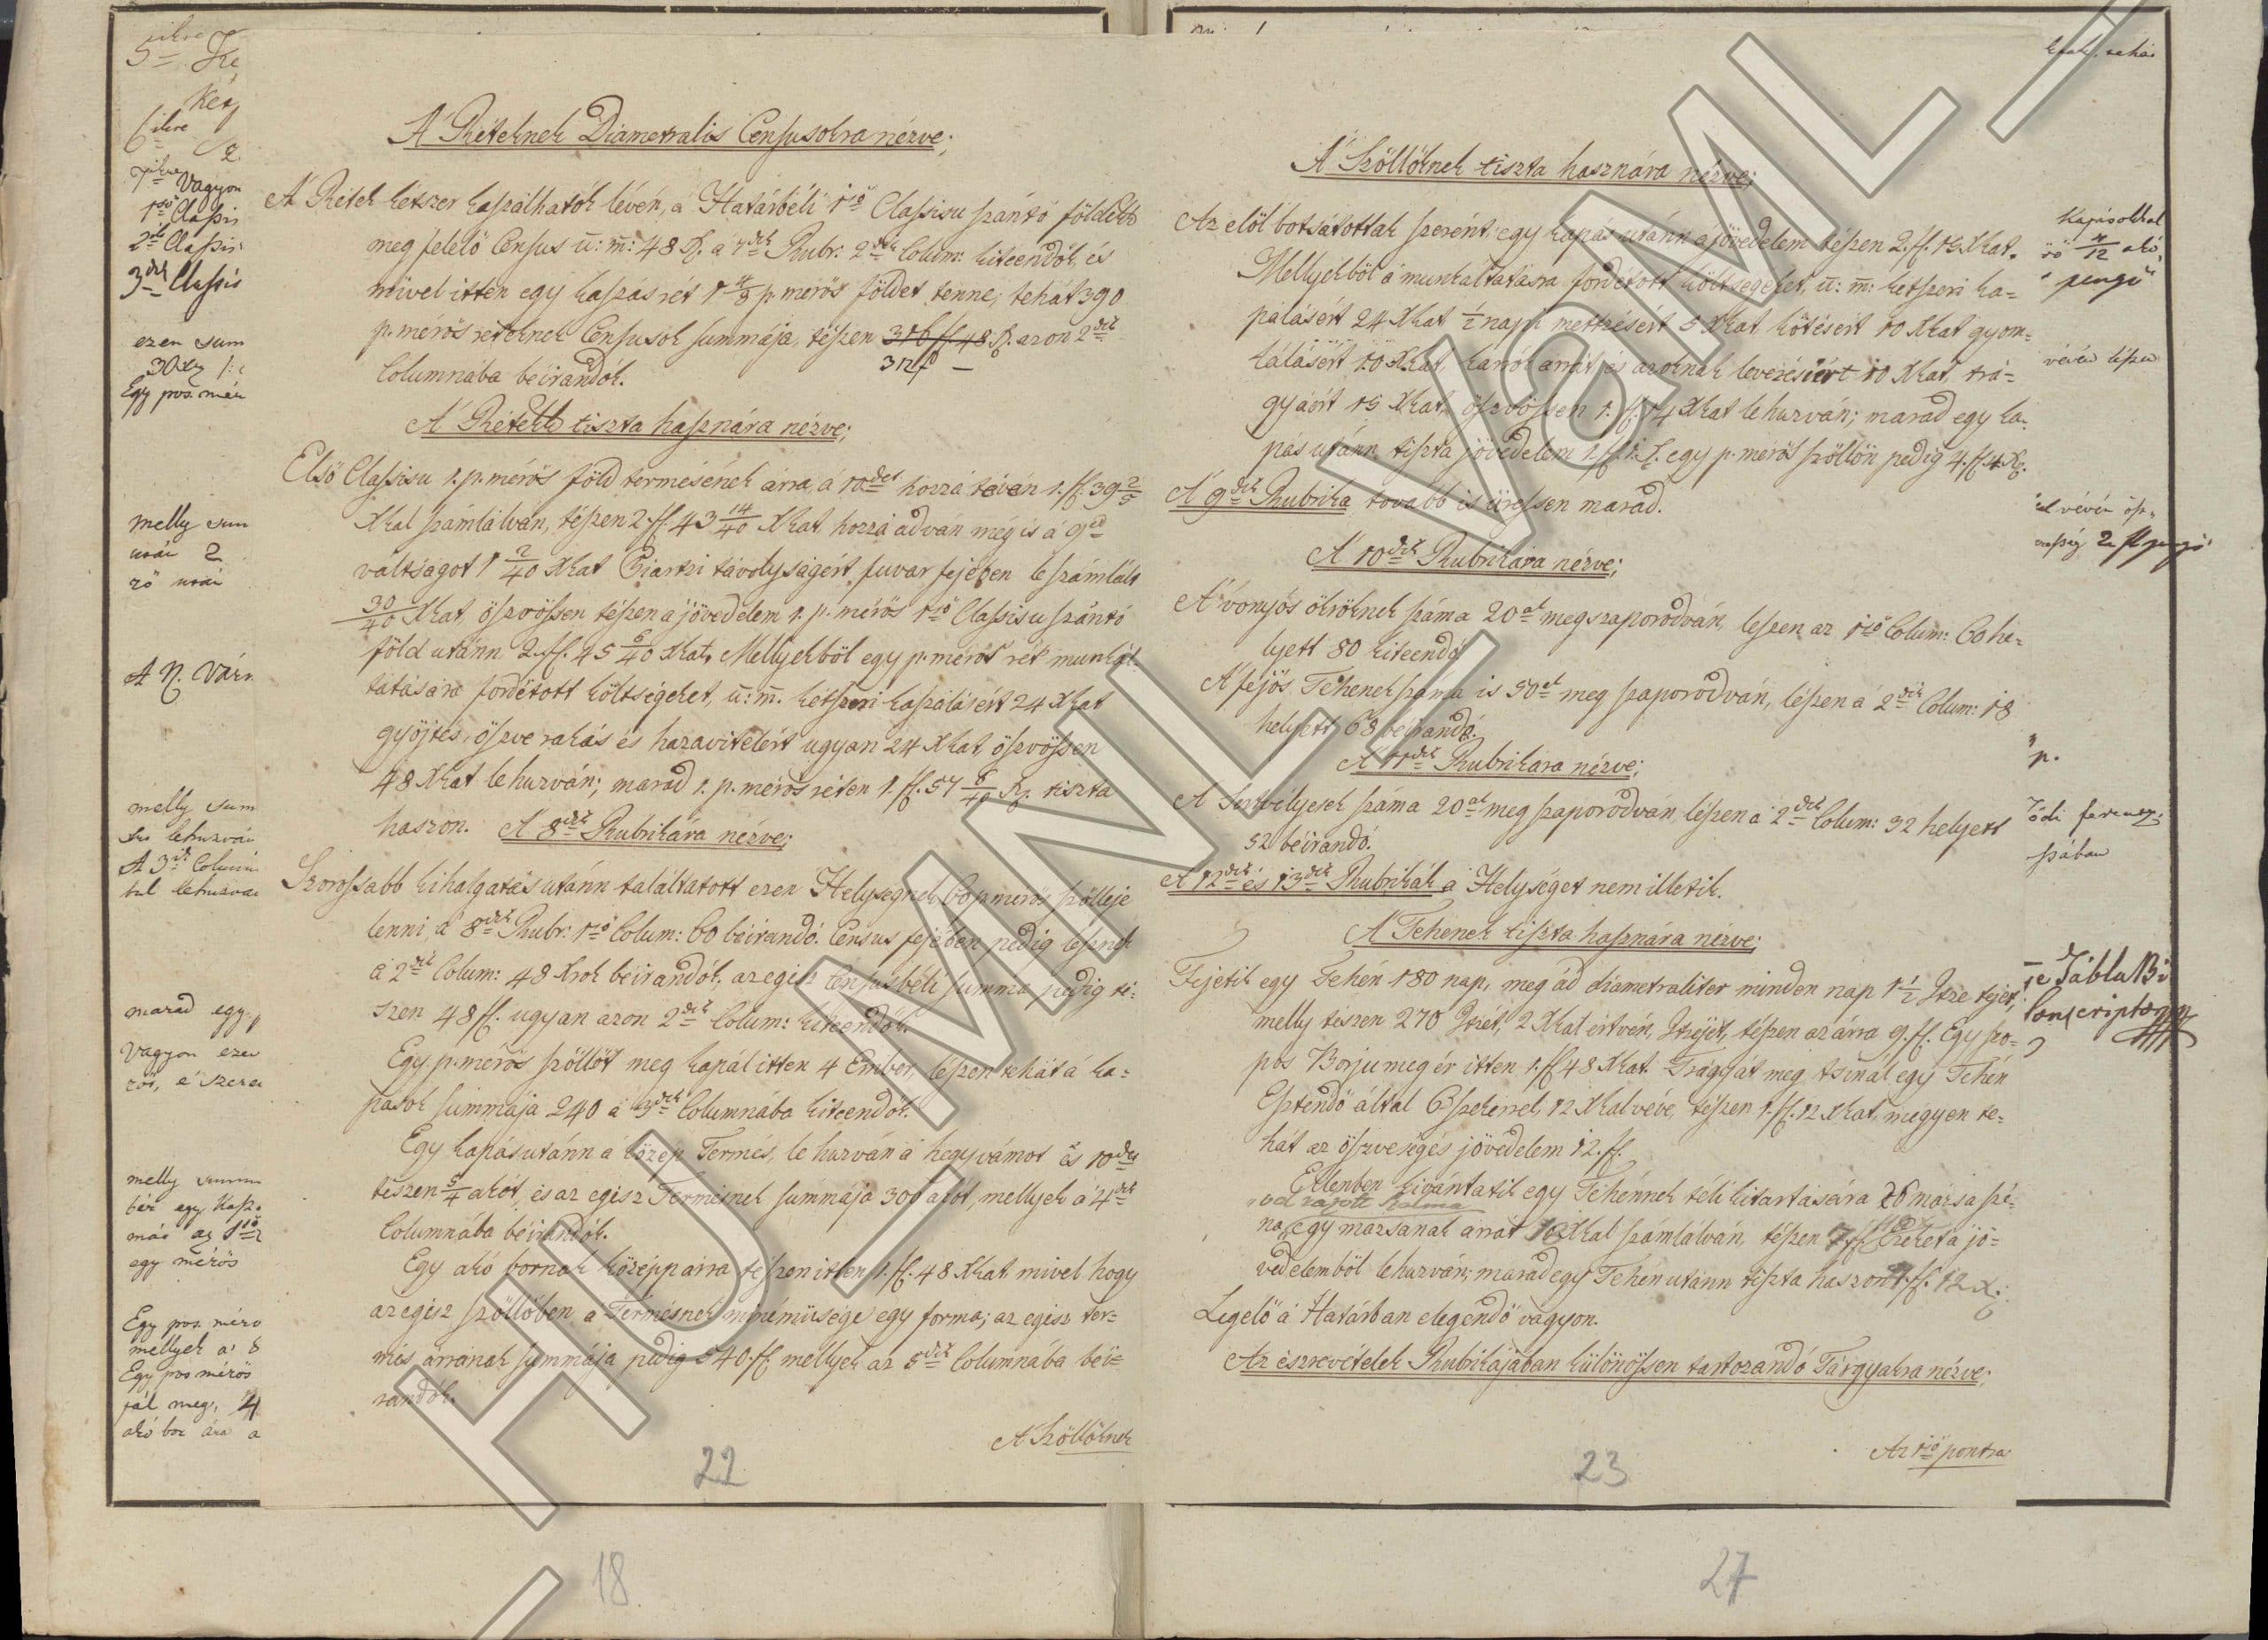 A' Réteknek Diametralis Censusokra nézve;
A' Rétek kétszer kaszálhatók lévén, a' Határbéli 1ső Classisu szántó földekk
meg felelő Census u: m: 48 X. a' 7dik Rubr: 2dik Colum: kiteendők, és
mivel itten egy kaszás rét p. mérős földet tenne; tehát 390
p. mérős réteknek Censusok summája, tészen 316 ff 48 X. azon 2dik
312 f —
Columnába béirandók.
A' Rétekk tiszta hasznára nézve;
Első Classisu 1. p. mérős föld termésének árra, a' 10det hozzá tévén 1. ff. 39 2/5
Xkal számlálván, tészen 2. ff. 43 14/40 Xkat hozzá adván még is a' 9ed
váltságot 1 2/40 Xkat Piartzi távolyságért, fuvar fejében le számlált
30/40 Xkat, öszvössen tészen a' jövedelem 1. p. mérős 1ső Classisu szántó
föld utánn 2. ff. 45 6/40 Xkat, Mellyekből egy p. mérős rét munkál-
tatására fordított költségeket, u: m. kétszeri kaszálásért 24 Xkat
gyöjtés, öszve rakás és hazavitelért ugyan 24 Xkat öszvössen
48 Xkat lehuzván; marad 1. p. mérős réten 1. ff. 57 6/40 X. tiszta
haszon. A' 8dik Rubrikára nézve;
Szorossabb kihalgatás utánn találtatott ezen Helységnek 60 p mérős szölleje
lenni, a' 8dik Rubr: 1ső Colum: 60 béirandó. Census fejében pedig lésznek
a' 2dik Colum: 48 Xrok béirandók, az egész Censusbéli summa pedig té-
szen 48 ff. ugyan azon 2dik Colum: kiteendők.
Egy p. mérős szöllőt meg kapál itten 4 Ember, lészen tehát a' ka-
pások summája 240 a' 3dik Columnába kiteendők.
Egy kapás utánn a' közép Termés, le huzván a' hegyvámot és 10det
tészen 5/4 akót, és az egész Termésnek summája 300 akót, mellyek a' 4dik
Columnába béirandók.
Egy akó bornak középp árra tészen itten 1. ff. 48 Xkat mivel hogy
az egész szöllőben a' Termésnek minémüsége egy forma; az egész ter-
més árrának summája pedig 540. ff. mellyek az 5dik Columnába béi-
randók.
A' Szöllőknek
22
18
A' Szöllőknek tiszta hasznára nézve;
Az elől botsátottak szerént egy kapás utánn a' jövedelem tészen 2. ff. 15 Xkat.
Mellyekből a' munkáltatásra fordított költségeket, u: m: kétszeri ka-
pálásért 24 Xkat 1/2 napi mettzésért 5 Xkat kötésért 10 Xkat gyom-
lálásért 10 Xkat, karrók árrát és azoknak leverésiért 10 Xkat, trá-
gyáért 15 Xkat, öszvössen 1. ff. 14 Xkat lehuzván; marad egy ka-
pás utánn tiszta jövedelem 1. ff. 1. X. egy p. mérős szöllőn pedig 4. ff. 4 X.
A' 9dik Rubrika továbbis üressen marad.
A' 10dik Rubrikára nézve;
A' vonyós ökröknek száma 20al megszaporodván, lészen az 1ső Colum: 60 he-
lyett 80 kiteendő
A' fejős Tehenek száma is 50el meg szaporodván, lészen a' 2dik Colum: 18
helyett 68 béirandó.
A' 11dik Rubrikára nézve;
A' Sertvélyesek száma 20al meg szaporodván, lészen a' 2dik Colum: 32 helyett
52 béirandó.
A' 12dik és 13dik Rubrikák a' Helységet nem illetik.
A' Tehenek tiszta hasznára nézve;
Fejetik egy Tehén 180 nap, meg ád diametraliter minden nap 1 1/2 Itze tejet,
melly teszen 270 Itzét, 2 Xkal értvén, Itzéjét, tészen az árra 9. ff. Egy szo-
pos Borju meg ér itten 1. ff. 48 Xkat. Trágyát meg tsinál egy Tehén
Esztendő által 6 szekérrel, 12 Xkal véve, tészen 1. ff. 12 Xkat, mégyen te-
hát az öszveségés jövedelem 12. ff.
Ellenben kivántatik egy Tehénnek téli kitartására 26 mázsa szé-
na, egy mázsának árrát Xkal számlálván, tészen ff. Ezeket a' jö-
vedelemből lehuzván; marad egy Tehén utánn tiszta haszon ff. 12 X.
Legelő a' Határban elegendő vagyon.
Az észrevételek Rubrikájában különössen tartozandó Tárgyakra nézve;
Az 1ső pontra
23
27
Vagyon
1ső Classis
2ik Classis
3dik Classis
ezen sum
30 X
Egy pos. mér
melly sum
A N. Vár
melly sum
marad egy
Vagyon ezen
melly summ
egy mérős
Egy pos. méro
mellyek a' 8
Egy pos mérös
jál meg, 4
akó bor ára a
kapásokkal
pengö
vévén tészen
Tábla Bi
Conscriptor
HU MNL VSML